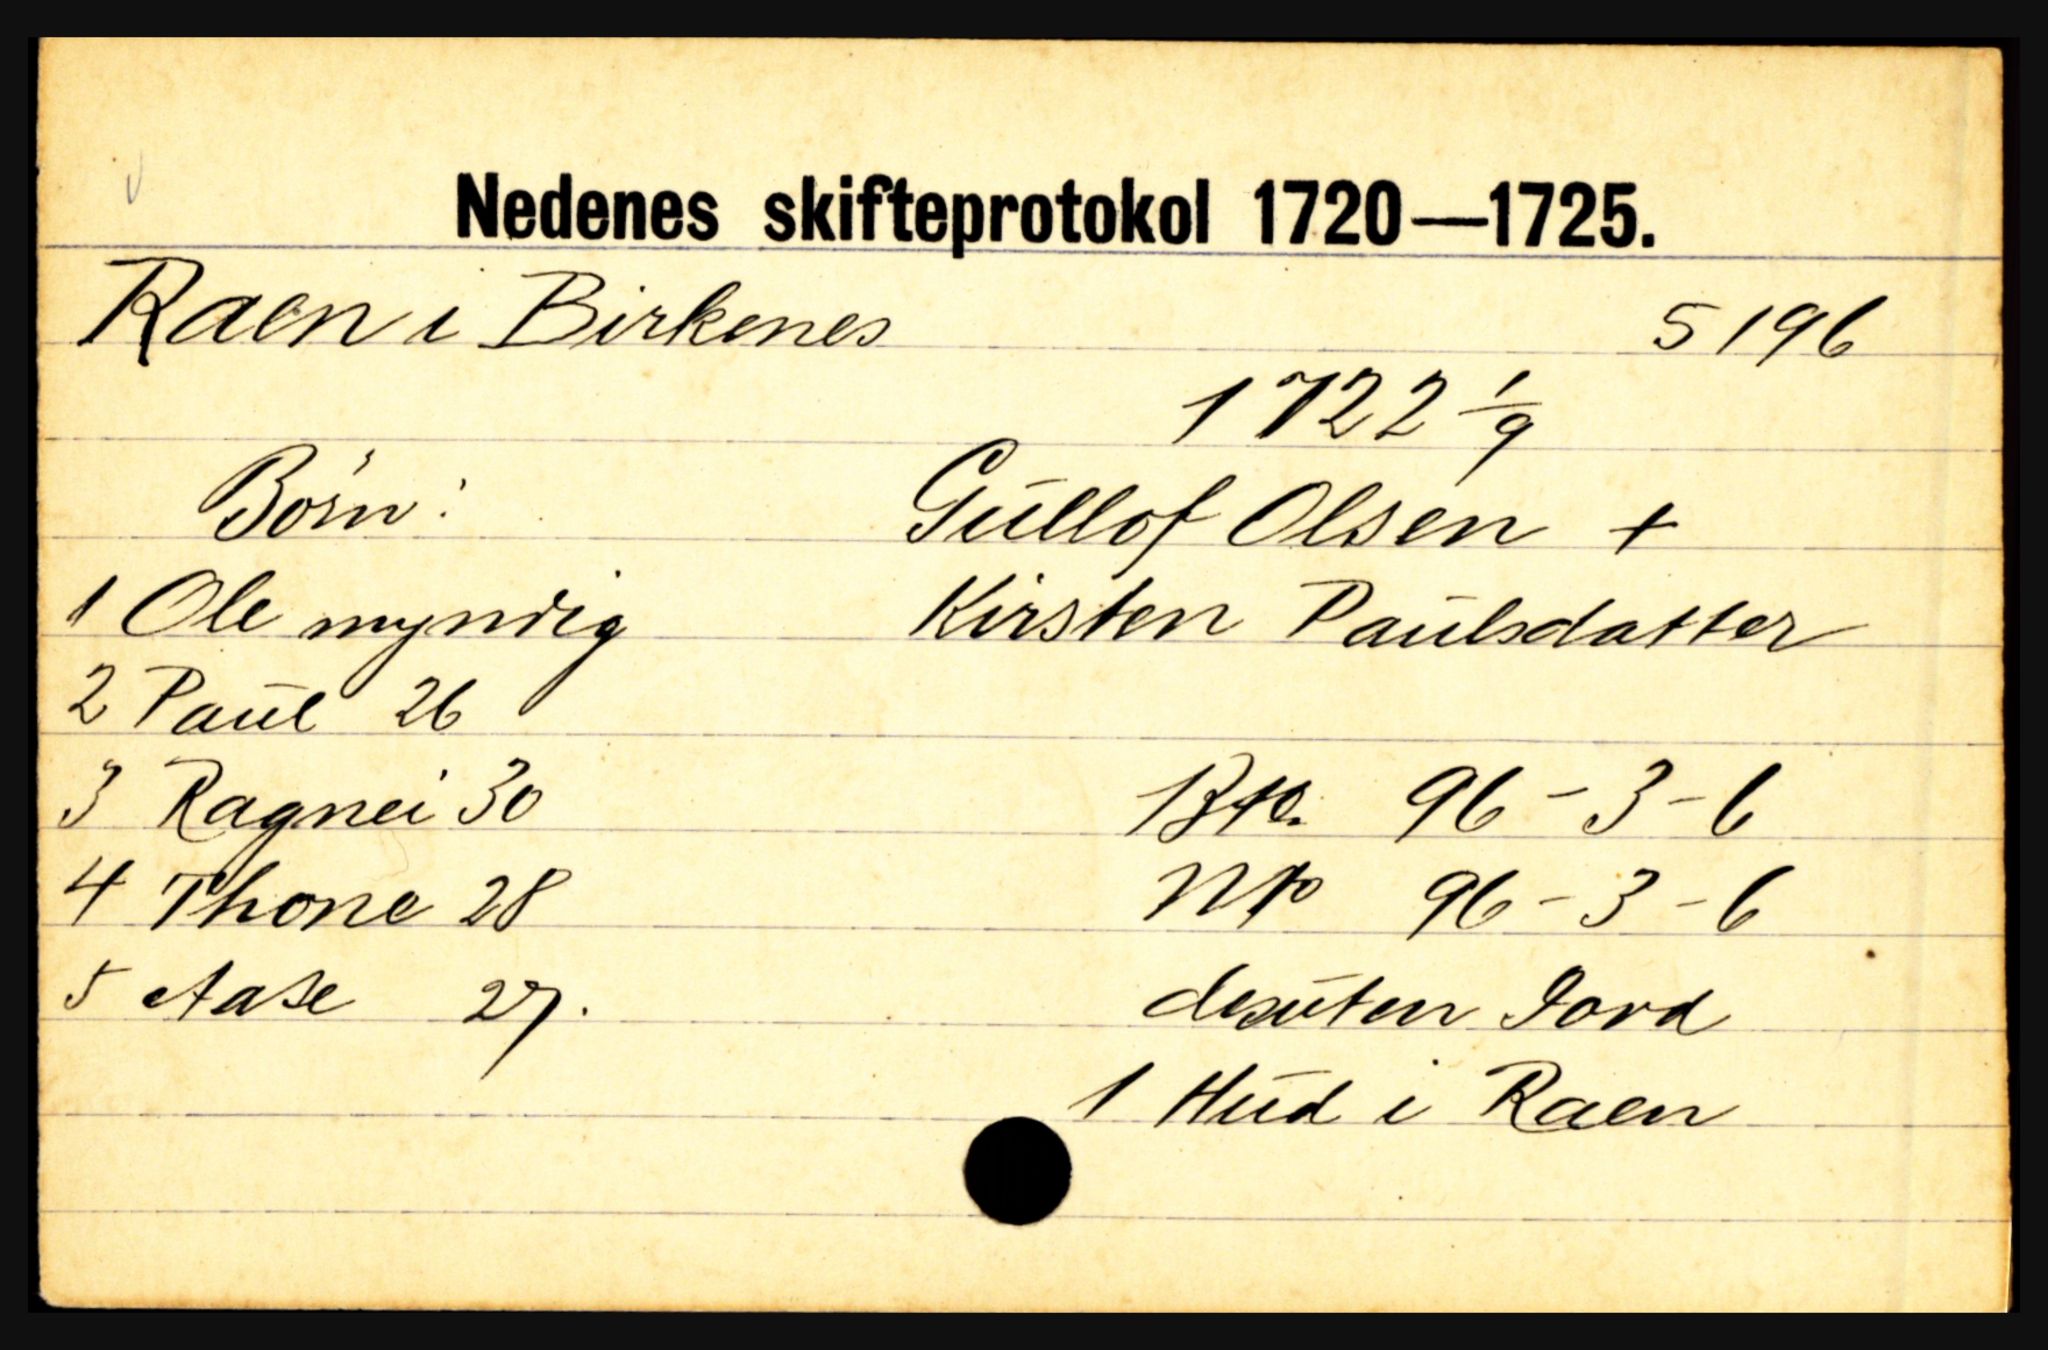 Nedenes skifteprotokol 1720—1725.
Raen i Birkenes 5196
1722 1/9
Börn: Gullof Olsen +
1 Ole myndig Kirsten Paulsdatter
2 Paul 26
3 Ragnei 30 B 96-3-6
4 Thone 28 N 96-3-6
5 Aase 27. desuten Jord
1 Hud i Raen